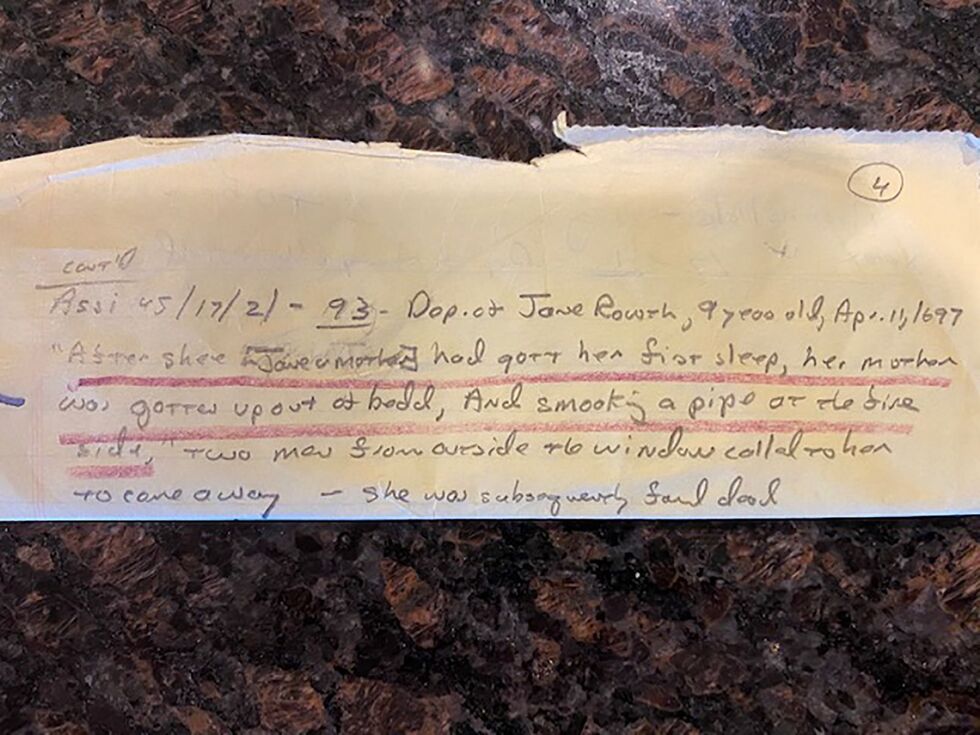 4
cont'd
Assi 45/17/2/ - 93 - Dep. of Jane Rowth, 9 yeos old, Apr. 11, 1697
"After shee [Jane's mother] had gott her first sleep, her mother
was gotten up out of bedd, And smooking a pipe at the fire
side," two men from outside the window called to her
to come away - she was subsequently found dead